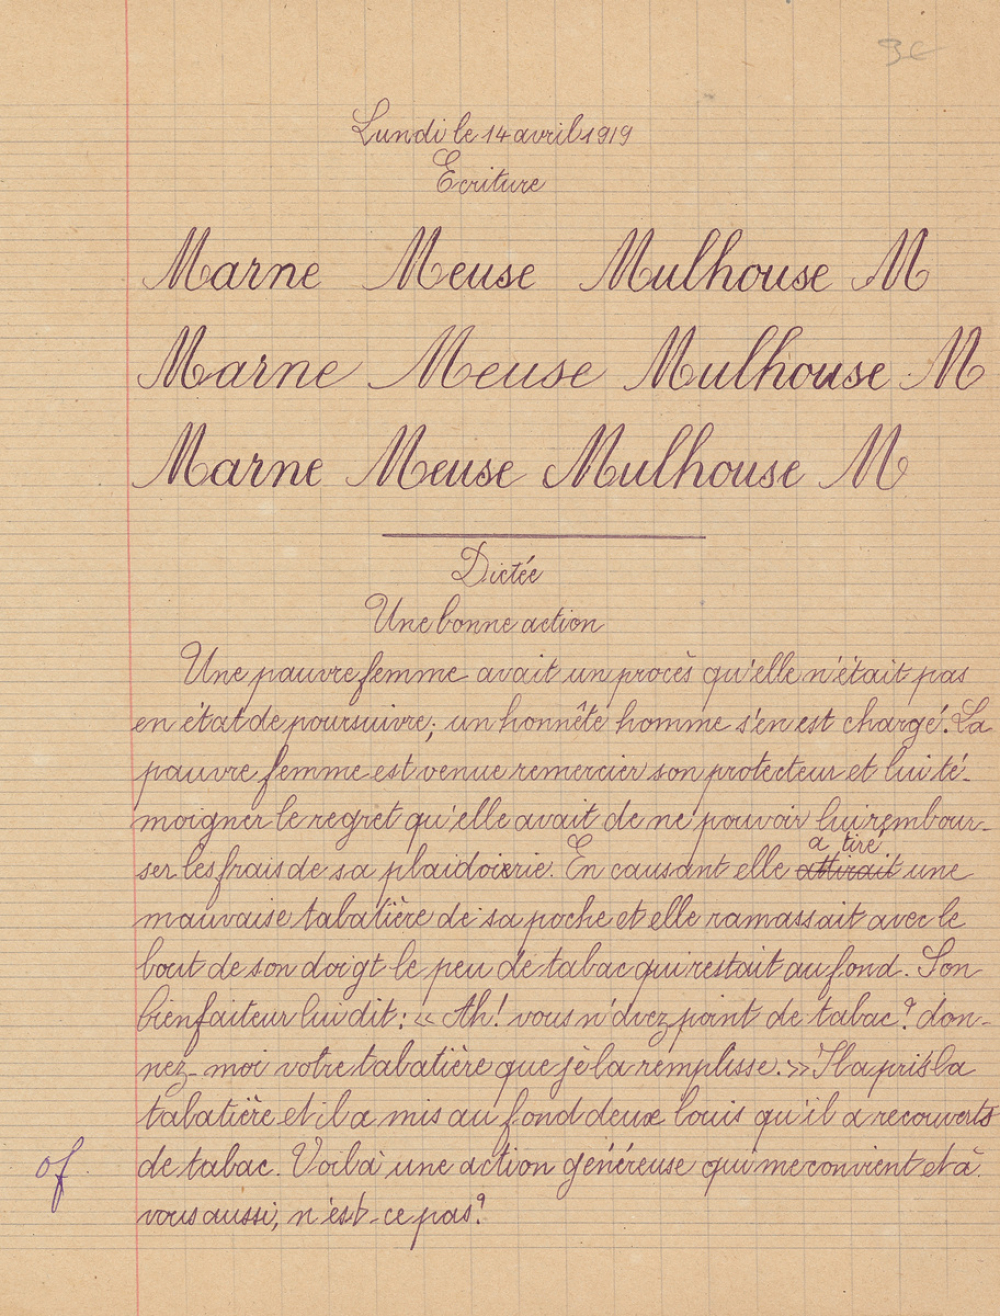 3e
Lundi le 14 avril 1919
Ecriture
Marne Meuse Mulhouse M
Marne Meuse Mulhouse M
Marne Meuse Mulhouse M
Dictée
Une bonne action
Une pauvre femme avait un procès qu'elle n'était pas
en état de poursuivre; un honnête homme s'en est chargé. La
pauvre femme est venue remercier son protecteur et lui té-
moigner le regret qu'elle avait de ne pouvoir lui rembour-
ser les frais de sa plaidoierie. En causant elle attirait a tiré une
mauvaise tabatière de sa poche et elle ramassait avec le
bout de son doigt le peu de tabac qui restait au fond. Son
bienfaiteur lui dit: « Ah! vous n'avez point de tabac? don-
nez-moi votre tabatière que je la remplisse. » Il a pris la
tabatière et il a mis au fond deux louis qu'il a recouverts
de tabac. Voilà une action généreuse qui me convient et à
vous aussi, n'est-ce pas?
of